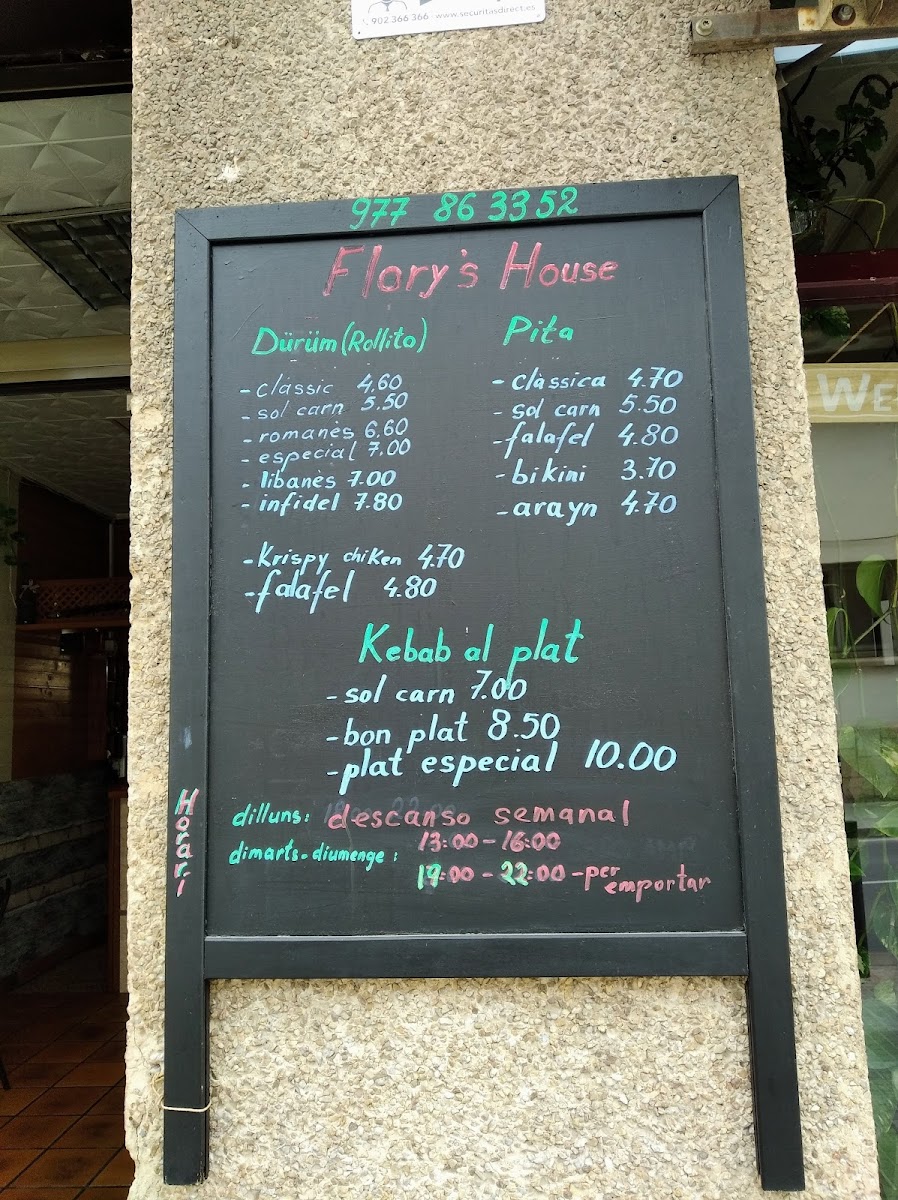 902 366 366 - www.securitasdirect.es
977 86 33 52
Flory's House
Dürüm (Rollito)
- clàssic 4.60
- sol carn 5.50
- romanès 6.60
- especial 7.00
- libanès 7.00
- infidel 7.80
- Krispy chiken 4.70
- falafel 4.80
Pita
- clàssica 4.70
- sol carn 5.50
- falafel 4.80
- bikini 3.70
- arayn 4.70
Kebab al plat
- sol carn 7.00
- bon plat 8.50
- plat especial 10.00
Horari
dilluns: descanso semanal
dimarts-diumenge: 13:00 - 16:00
19:00 - 22:00 - per emportar
WE